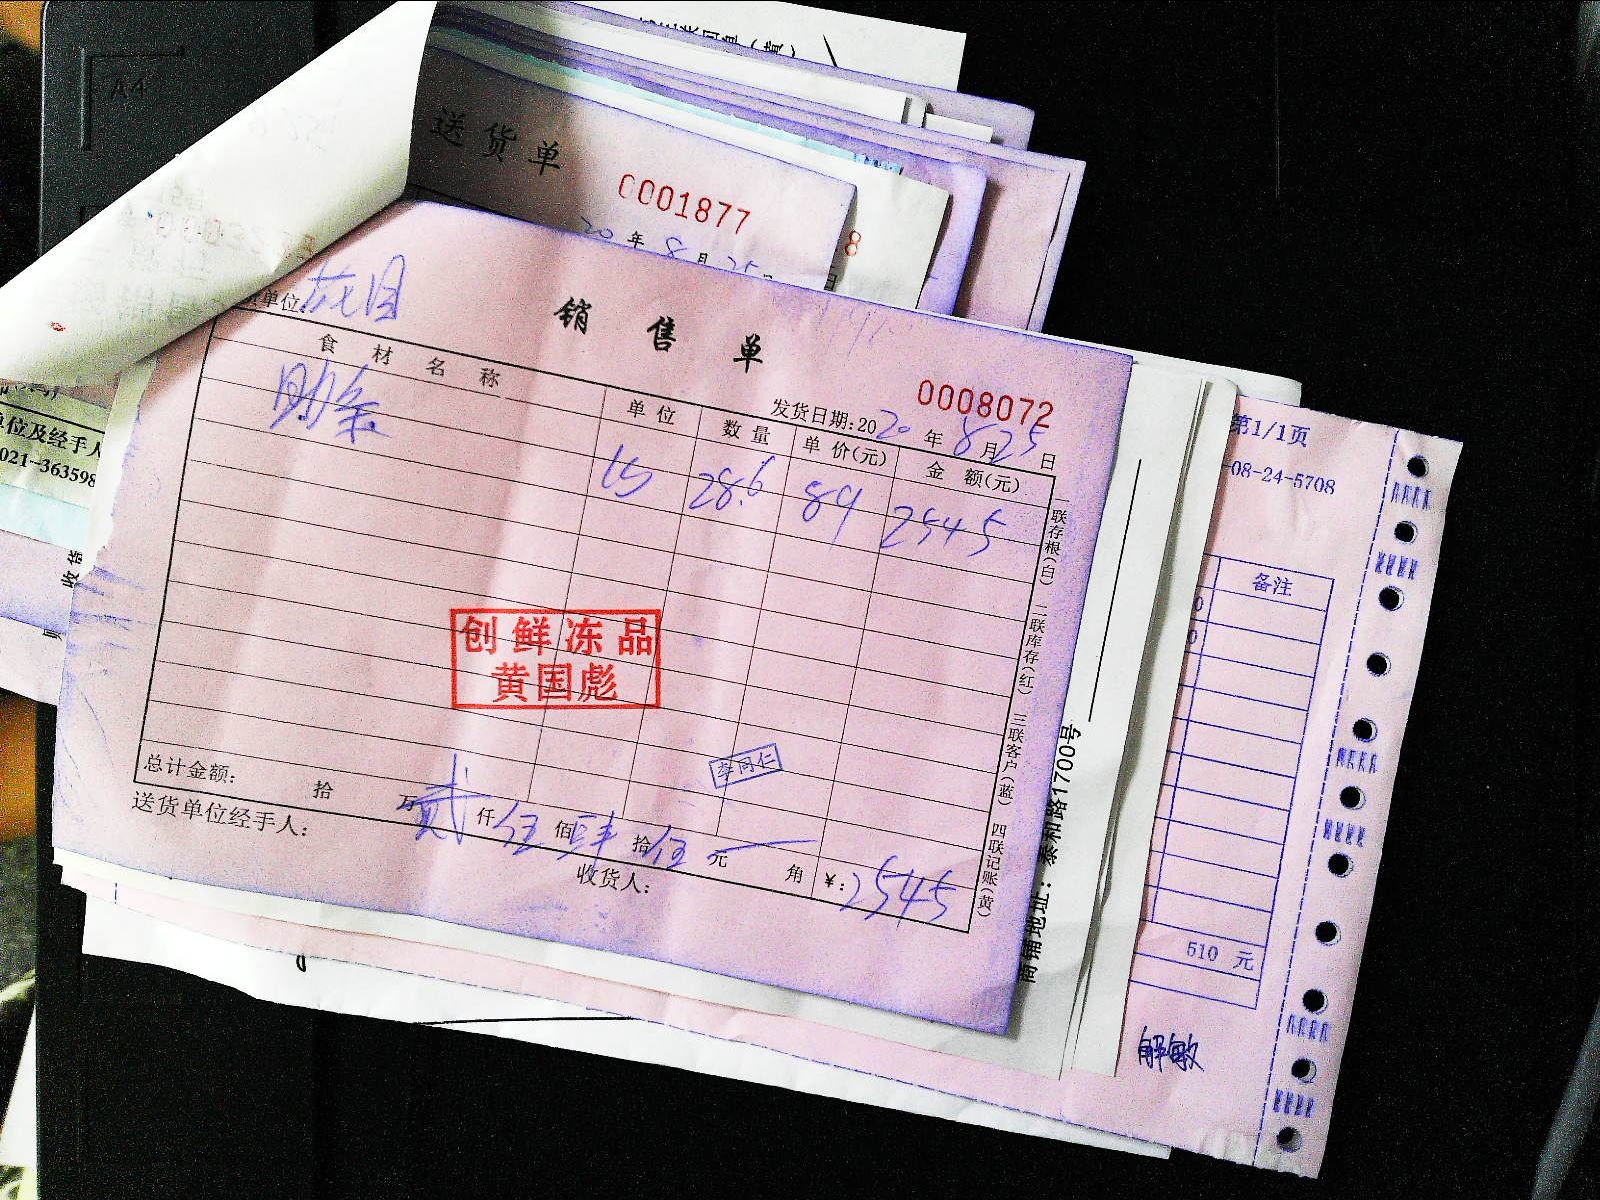 A4
送货单
0001877
20年8月25日
8
单位
销售单
0008072
发货日期:2020年8月25日
食材名称 单位 数量 单价(元) 金额(元)
肋条 28.6 89 2545
创鲜冻品
黄国彪
李同仁
总计金额: 拾 万贰仟伍佰肆拾伍元 角 ¥:2545
送货单位经手人: 收货人:
一联存根(白) 二联库存(红) 三联客户(蓝) 四联记账(黄)
单位及经手人
021-363598
第1/1页
-08-24-5708
备注
510 元
解敏
商铺地址:泰和路1700号